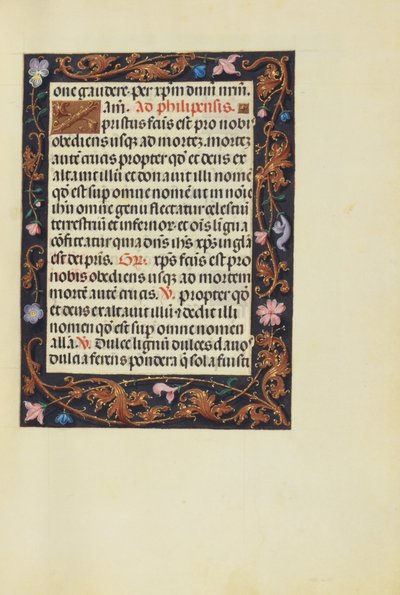 one gaudere. per xp̄m dn̄m nr̄m.
am̄. Ad philipensis.
Xpristus factus est pro nobi
obediens usq̄ ad mortez. mortez
autē crucis propter qđ et deus ex
altauit illū et donauit illi nomē
qđ est sup omne nomen ut in noīe
ihū omne genu flectatur celestiū
terrestriū et infernor et oīs ligua
cōfiteatur quia dn̄s ihs xp̄s in glā
est dei p̄ris. Gr. xp̄s factus est pro
nobis obediens usq̄ ad mortem
mortē autē crucis. V. propter qđ
et deus exaltauit illū ⁊ dedit illi
nomen qđ est sup omne nomen
all'a V. Dulce lignū dulces clauos
dulcia ferens pondera q̄ sola fuisti